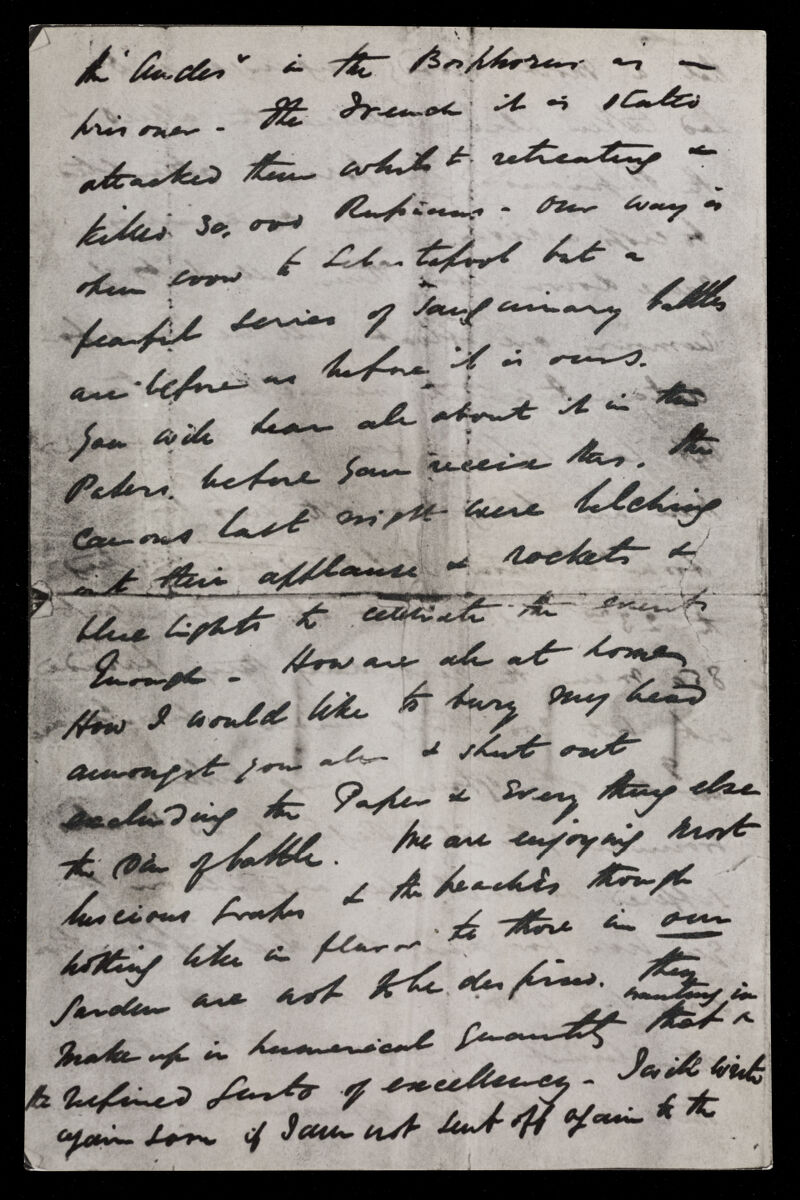 the "Andes" in the Bosphorus as a
prisoner - The French it is stated
attacked them whilst retreating &
killed 30,000 Russians - Our way is
open now to Sebastopool but a
fearful series of sanguinary battles
are before us before it is ours.
You will hear all about it in the
Papers before you receive this. The
canons last night were belching
out their applause & rockets &
blue lights to celebrate the events
Enough - How are all at home
How I would like to bury my head
amongst you all & shut out
excluding the Paper & Every thing else
the Din of battle. We are enjoying most
luscious Grapes & the peaches though
nothing like in flavor to those in our
Garden are not to be despised. They
make up in numerical quantity that wanting in
the refined Gusto of excellency - I will write
again soon if I am not sent off again to the